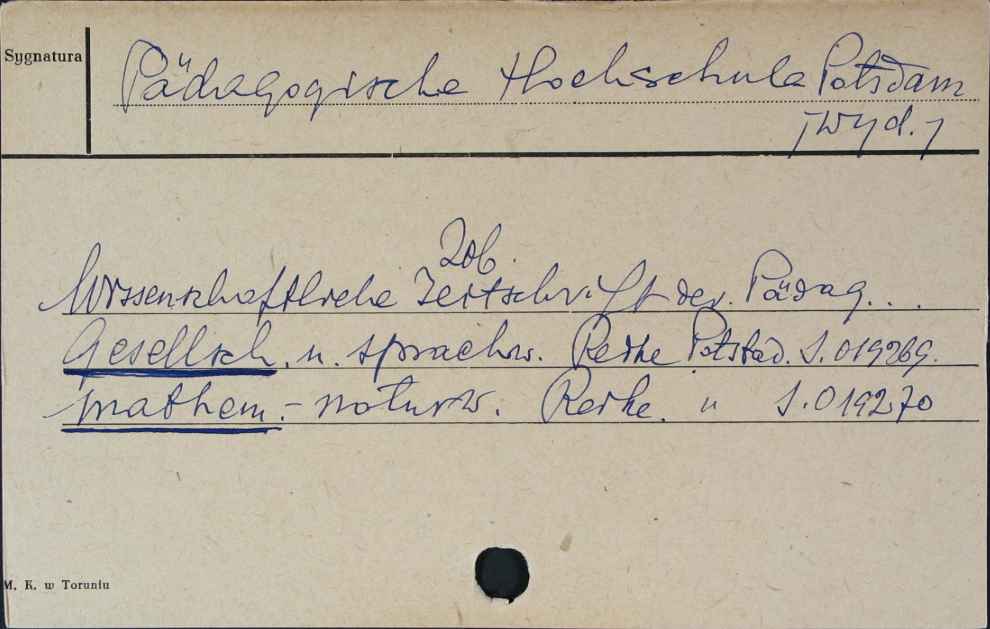 Sygnatura
Pädagogische Hochschule Potsdam
/Wyd./
Zob.
Wissenschaftliche Zeitschrift der Pädag...
Gesellsch. u. sprachw. Reihe Potsdad. S. 019269.
mathem.- naturw. Reihe. " S. 019270
M. K. w Toruniu